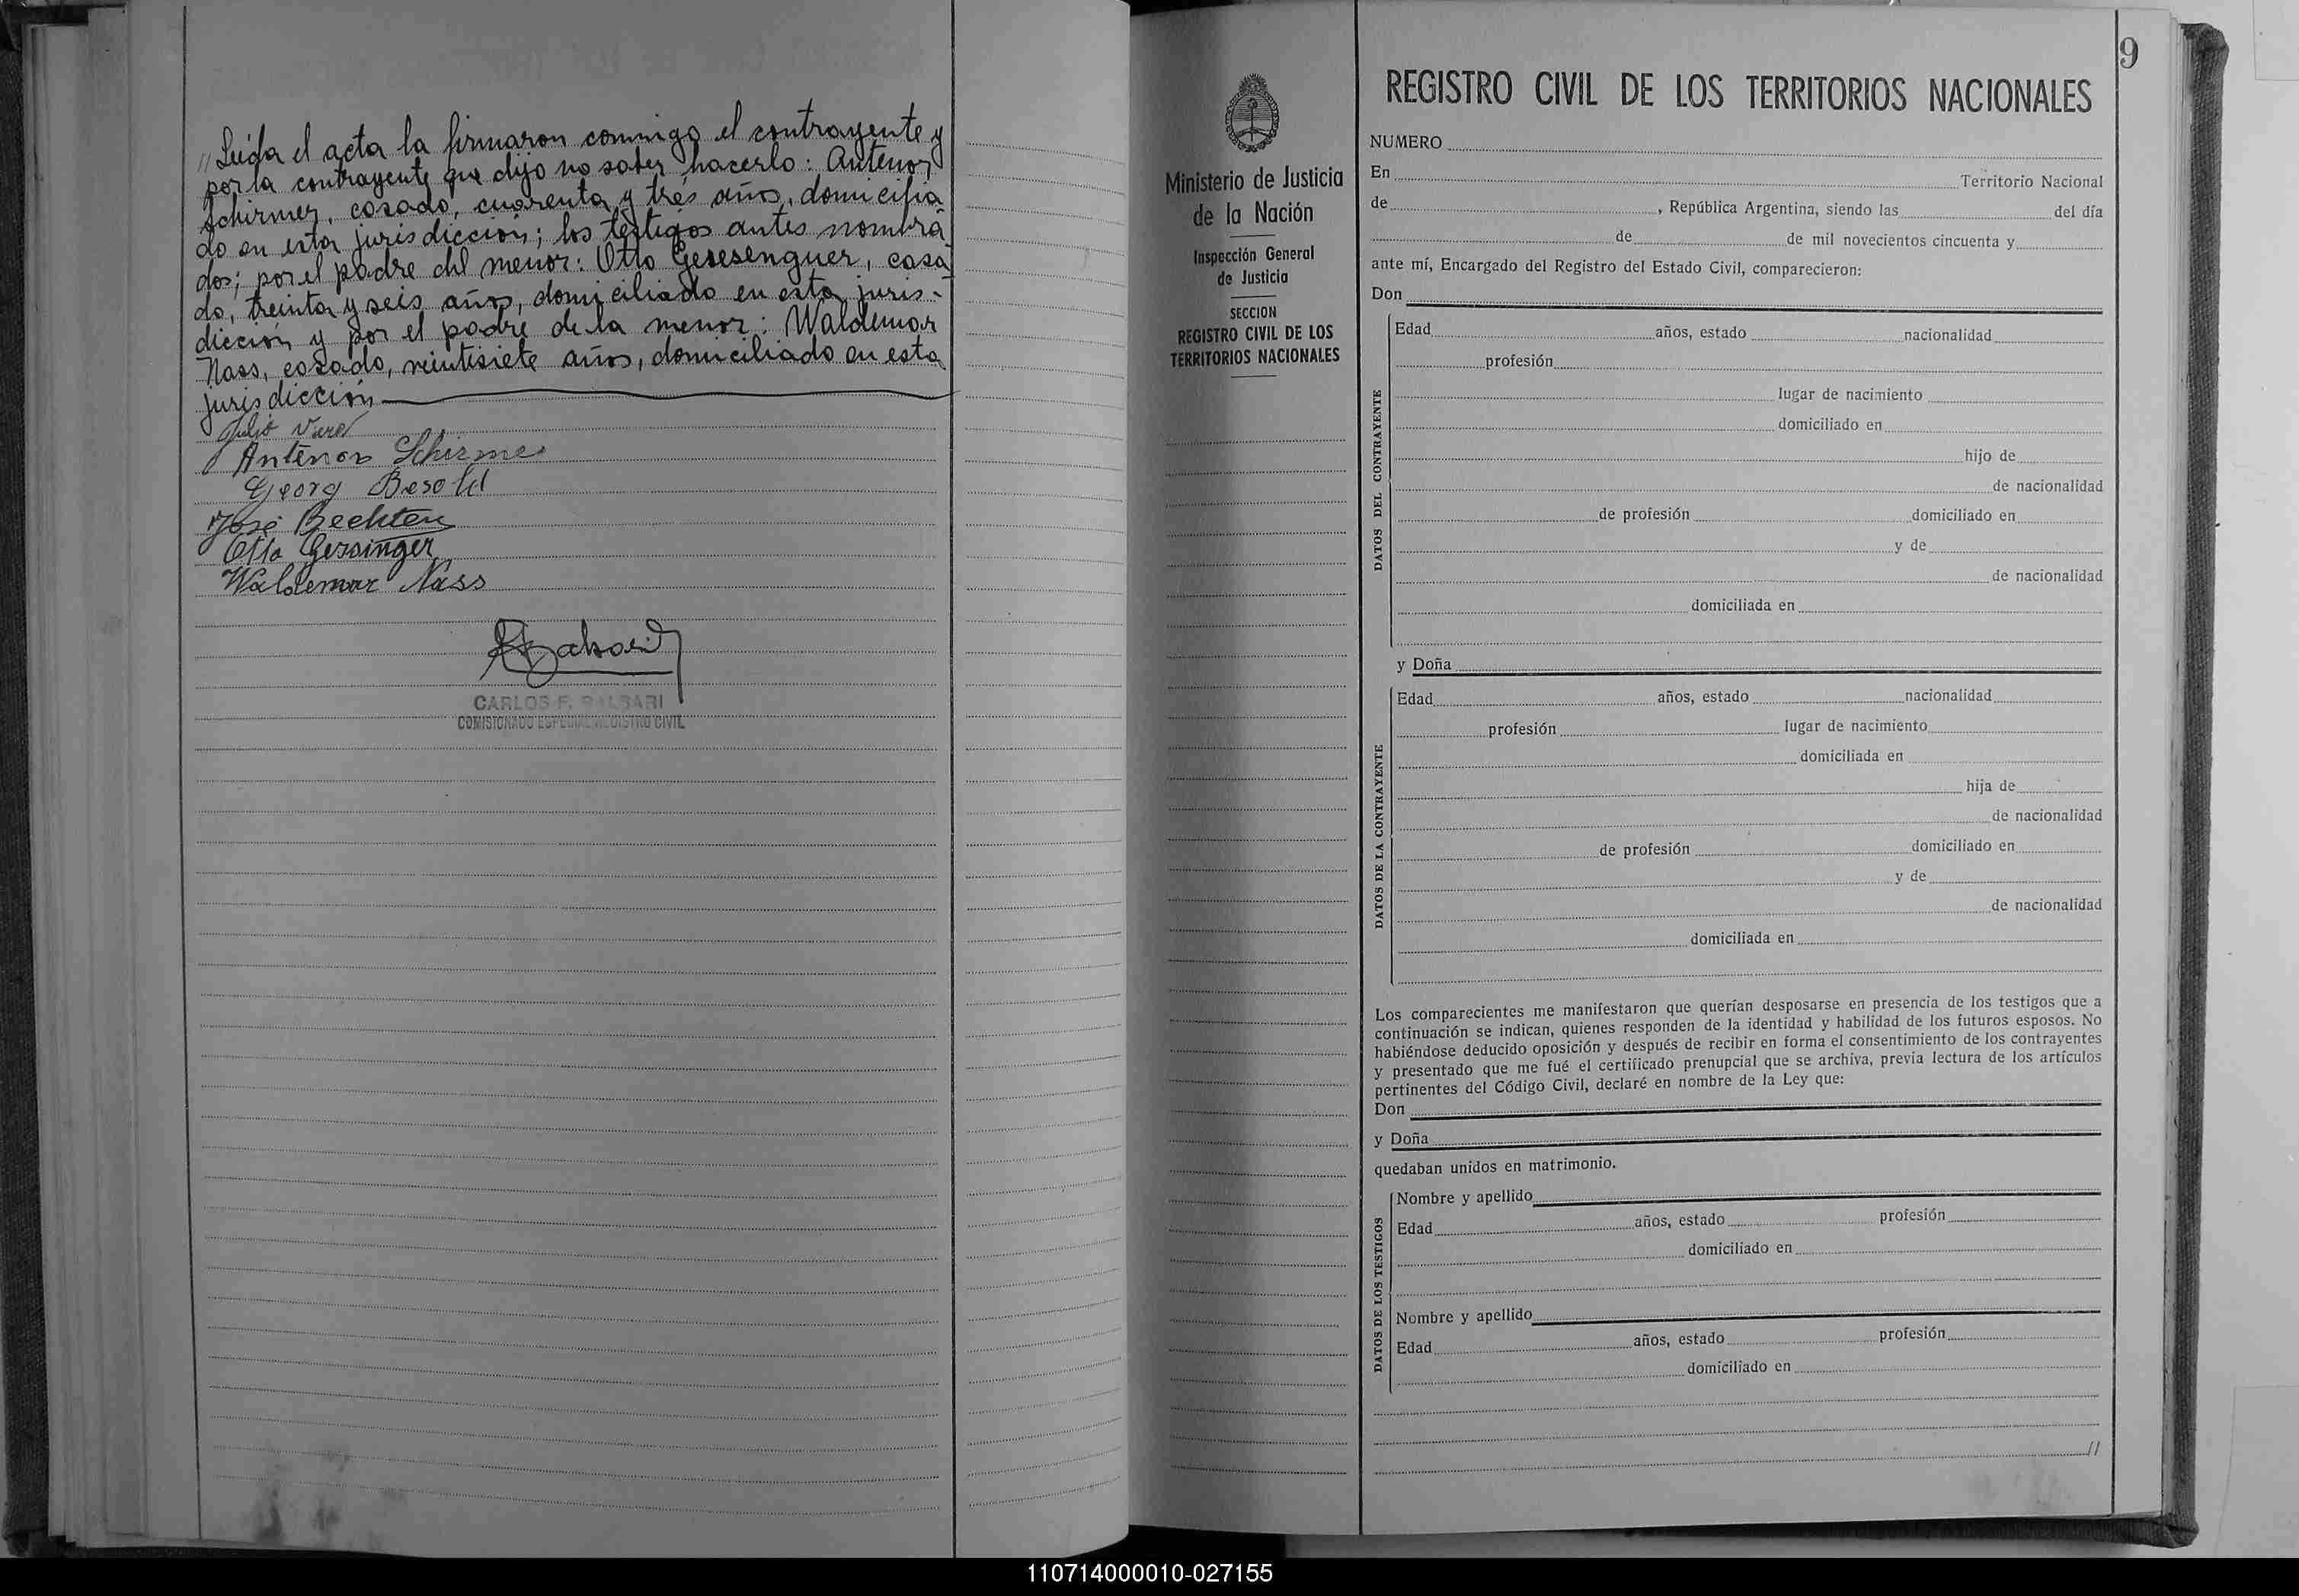 // Leída el acta la firmaron conmigo el contrayente y
por la contrayente que dijo no saber hacerlo: Antenor
Schirmer, casado, cuarenta y tres años, domicilia
do en esta jurisdicción; los testigos antes nombra
dos; por el padre del menor: Otto Gesesenguer, casa
do, treinta y seis años, domiciliado en esta juris-
dicción y por el padre de la menor: Waldemar
Nass, casado, veintisiete años, domiciliado en esta
jurisdicción
Julio
Antenor Schirmer
Georg Besold
José Bechten
Otto Gersinger
Waldemar Nass
CARLOS F. BALSARI
COMISIONADO ESPECIAL REGISTRO CIVIL
Ministerio de Justicia
de la Nación
Inspección General
de Justicia
SECCION
REGISTRO CIVIL DE LOS
TERRITORIOS NACIONALES
9
REGISTRO CIVIL DE LOS TERRITORIOS NACIONALES
NUMERO
En Territorio Nacional
de , República Argentina, siendo las del día
de de mil novecientos cincuenta y
ante mí, Encargado del Registro del Estado Civil, comparecieron:
Don
DATOS DEL CONTRAYENTE
Edad años, estado nacionalidad
profesión
lugar de nacimiento
domiciliado en
hijo de
de nacionalidad
de profesión domiciliado en
y de
de nacionalidad
domiciliada en
y Doña
DATOS DE LA CONTRAYENTE
Edad años, estado nacionalidad
profesión lugar de nacimiento
domiciliada en
hija de
de nacionalidad
de profesión domiciliado en
y de
de nacionalidad
domiciliada en
Los comparecientes me manifestaron que querían desposarse en presencia de los testigos que a
continuación se indican, quienes responden de la identidad y habilidad de los futuros esposos. No
habiéndose deducido oposición y después de recibir en forma el consentimiento de los contrayentes
y presentado que me fué el certificado prenupcial que se archiva, previa lectura de los artículos
pertinentes del Código Civil, declaré en nombre de la Ley que:
Don
y Doña
quedaban unidos en matrimonio.
DATOS DE LOS TESTIGOS
Nombre y apellido
Edad años, estado profesión
domiciliado en
Nombre y apellido
Edad años, estado profesión
domiciliado en
//
110714000010-027155